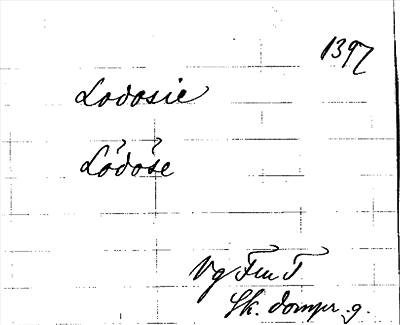 1397
Lodosie
Lödöse
Vg Fu T
Sk. dompr. g.